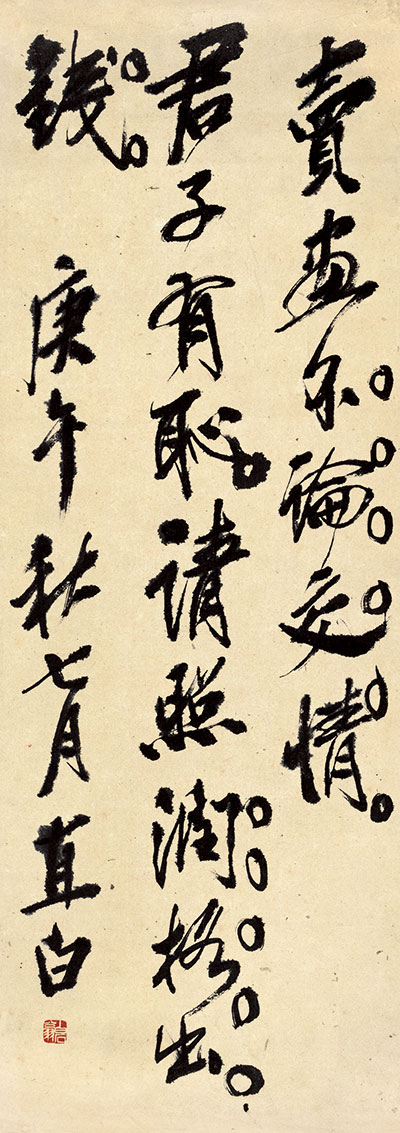 賣畫不論交情。
君子有恥。請照潤格出
錢。 庚午秋七月直白